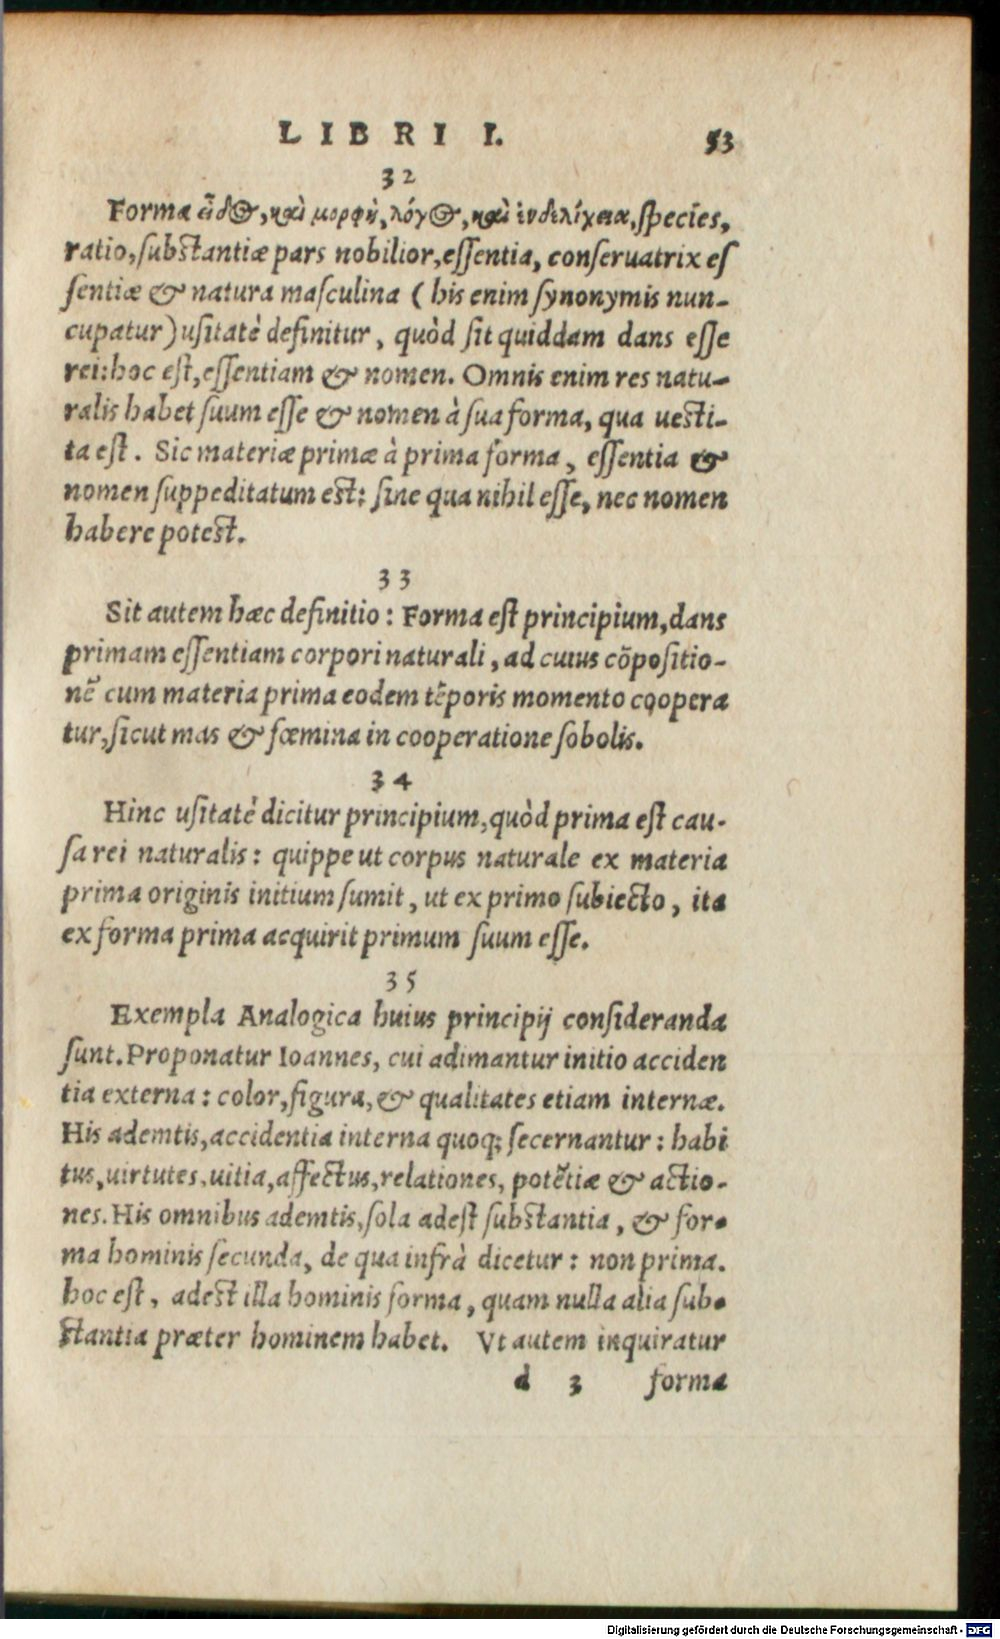 LIBRI I. 53
32
Forma εἶδος, καὶ μορφὴ, λόγος, καὶ ἐνδελέχεια, species,
ratio, substantiæ pars nobilior, essentia, conseruatrix es
sentiæ & natura masculina ( his enim synonymis nun-
cupatur) usitatè definitur, quòd sit quiddam dans esse
rei: hoc est, essentiam & nomen. Omnis enim res natu-
ralis habet suum esse & nomen à sua forma, qua uesti-
ta est. Sic materiæ primæ à prima forma, essentia &
nomen suppeditatum est: sine qua nihil esse, nec nomen
habere potest.
33
Sit autem hæc definitio: Forma est principium, dans
primam essentiam corpori naturali, ad cuius cõpositio-
nẽ cum materia prima eodem tẽporis momento coopera
tur, sicut mas & fœmina in cooperatione sobolis.
34
Hinc usitatè dicitur principium, quòd prima est cau-
sa rei naturalis: quippe ut corpus naturale ex materia
prima originis initium sumit, ut ex primo subiecto, ita
ex forma prima acquirit primum suum esse.
35
Exempla Analogica huius principij consideranda
sunt. Proponatur Ioannes, cui adimantur initio acciden
tia externa: color, figura, & qualitates etiam internæ.
His ademtis, accidentia interna quoq; secernantur: habi
tus, uirtutes, uitia, affectus, relationes, potẽtiæ & actio-
nes. His omnibus ademtis, sola adest substantia, & for-
ma hominis secunda, de qua infrà dicetur: non prima.
hoc est, adest illa hominis forma, quam nulla alia sub-
stantia præter hominem habet. Vt autem inquiratur
d 3 forma
Digitalisierung gefördert durch die Deutsche Forschungsgemeinschaft - DFG